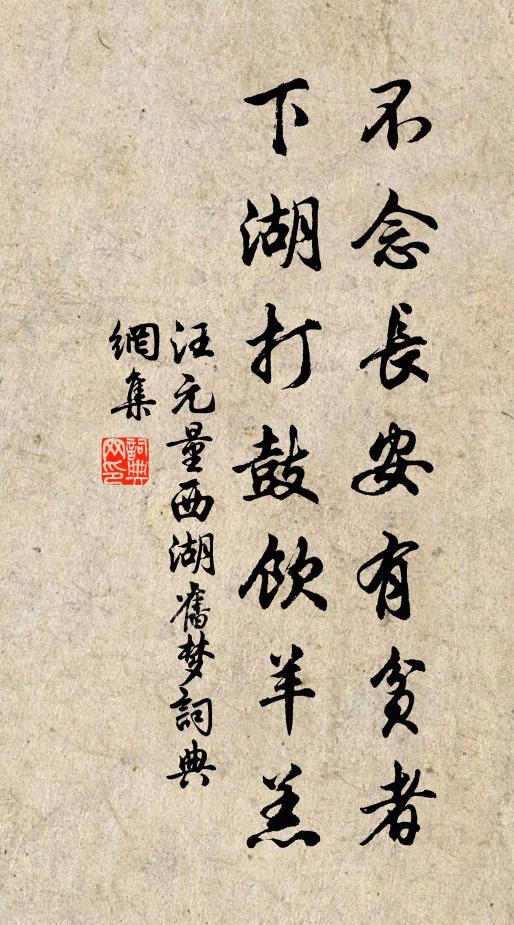 不念長安有貧者
下湖打鼓飲羊羔
汪元量西湖舊夢詞典
網集
詞典
网印